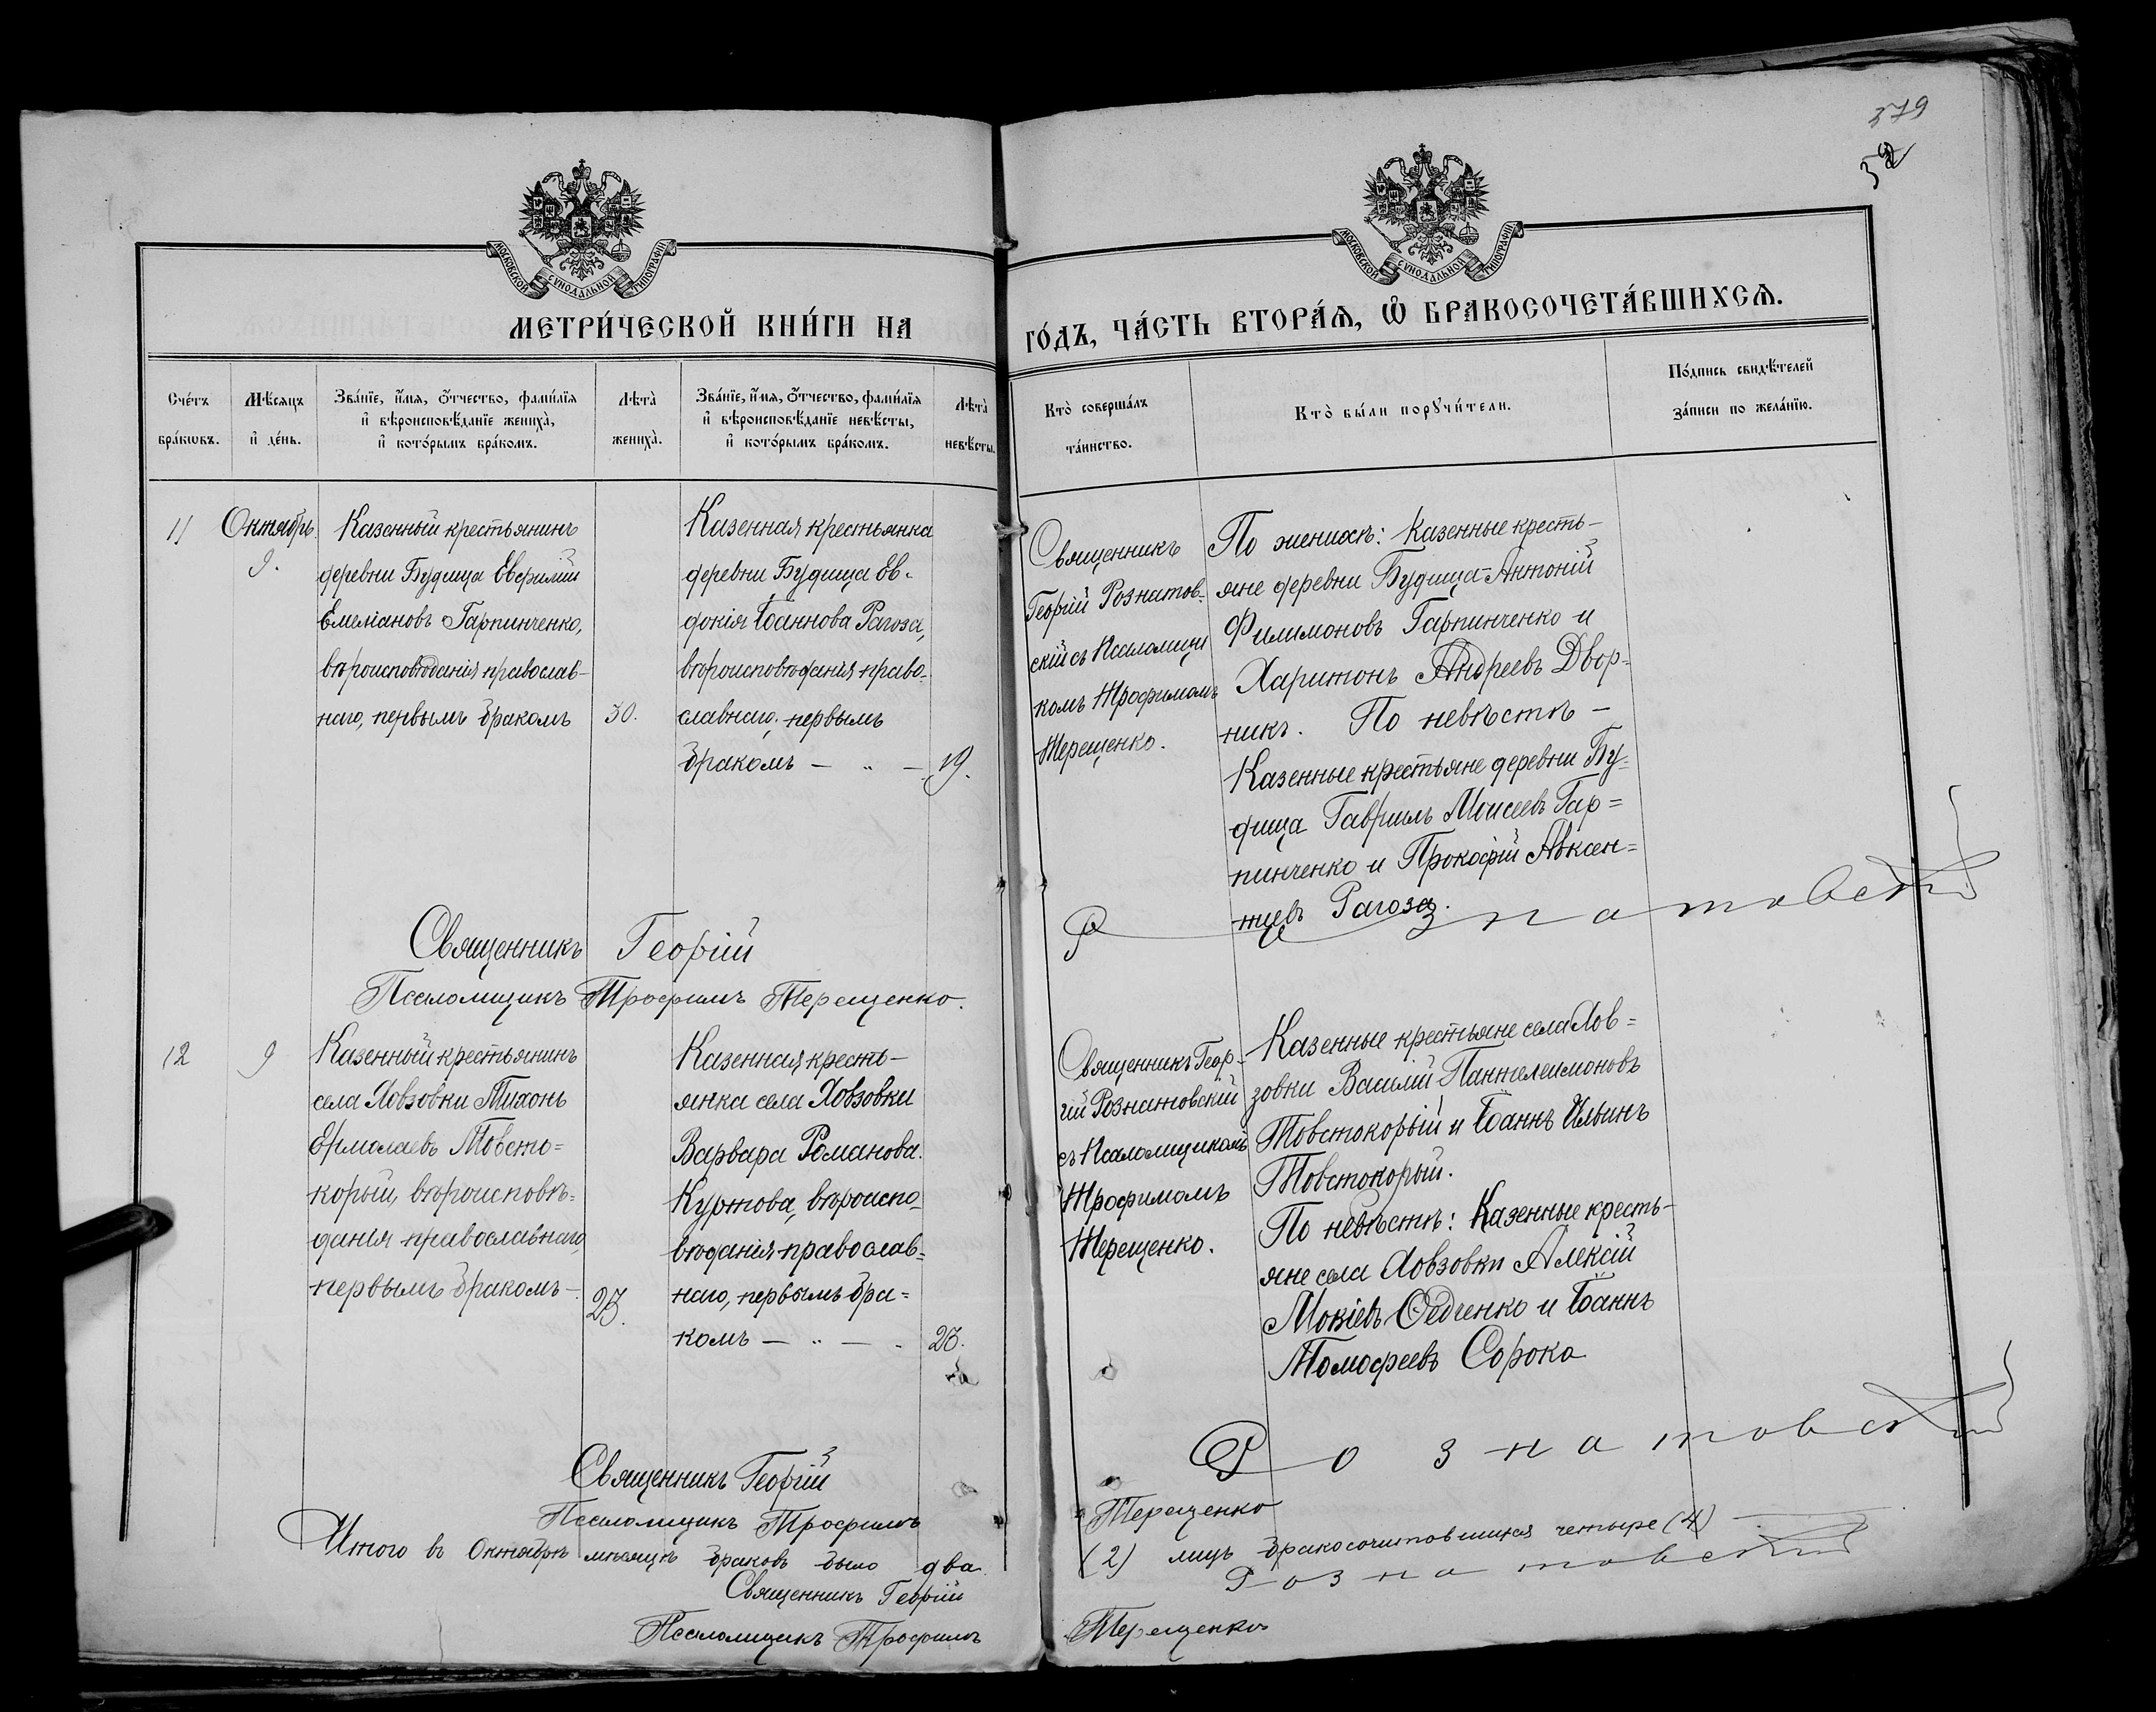 379
МОСКОВСКОЙ СѴНОДАЛЬНОЙ ТИПОГРАФІИ
МОСКОВСКОЙ СѴНОДАЛЬНОЙ ТИПОГРАФІИ
МЕТРИ́ЧЕСКОЙ КНИ́ГИ НА
ГО́ДЪ, ЧА́СТЬ ВТОРА́Ѧ, Ѡ҆ БРАКОСОЧЕТА́ВШИХСѦ.
Сче́тъ бра́кѡвъ.
Мѣ́сѧцъ и҆ де́нь.
Зва́нїе, и҆́мѧ, ѻ҆́тчество, фами́лїѧ и҆ вѣроисповѣ́данїе жениха̀, и҆ кото́рымъ бра́комъ.
Лѣта̀ жениха̀.
Зва́нїе, и҆́мѧ, ѻ҆́тчество, фами́лїѧ и҆ вѣроисповѣ́данїе невѣ́сты, и҆ кото́рымъ бра́комъ.
Лѣта̀ невѣ́сты.
Кто̀ соверша́лъ та́инство.
Кто̀ бы́ли порꙋчи́тели.
По́дпись свидѣ́телей за́писи по жела́нїю.
11
Октябрь
9.
Казенный крестьянинъ
деревни Будища Евфимій
Емеліановъ Гарпинченко,
вѣроисповѣданія православ-
наго, первымъ бракомъ
30.
Казенная крестьянка
деревни Будища Ев-
докія Іоаннова Рагоза,
вѣроисповѣданія право-
славнаго, первымъ
бракомъ — „ —
19.
Священникъ
Георгій Рознатов-
скій съ Псаломщи
комъ Трофимомъ
Терещенко.
По женихѣ: Казенные кресть-
яне деревни Будища Антоній
Филимоновъ Гарпинченко и
Харитонъ Андреевъ Двор-
никъ. По невѣстѣ —
Казенные крестьяне деревни Бу-
дища Гавріилъ Моисеевъ Гар=
пинченко и Прокофій Авксен=
тіевъ Рагоза.
Священникъ Георгій Рознатовскій
Псаломщикъ Трофимъ Терещенко.
12
9
Казенный крестьянинъ
села Ховзовки Тихонъ
Ермолаевъ Товсто=
корый, вѣроисповѣ-
данія православнаго,
первымъ бракомъ —
23.
Казенная кресть-
янка села Ховзовки
Варвара Романова
Куртова, вѣроиспо-
вѣданія православ-
наго, первымъ бра=
комъ — „ — .
23.
Священникъ Геор-
гій Рознатовскій
съ Псаломщикомъ
Трофимомъ
Терещенко.
Казенные крестьяне села Хов=
зовки Василій Пантелеимоновъ
Товстокорый и Іоаннъ Ильинъ
Товстокорый.
По невѣстѣ: Казенные кресть-
яне села Ховзовки Алексій
Мокіевъ Федченко и Іоаннъ
Тимофеевъ Сорока
Священникъ Георгій Рознатовскій
Псаломщикъ Трофимъ Терещенко
Итого въ Октябрѣ мѣсяцѣ браковъ было два (2) лицъ бракосочитовшихся четыре (4)
Священникъ Георгій Рознатовскій
Псаломщикъ Трофимъ Терещенко